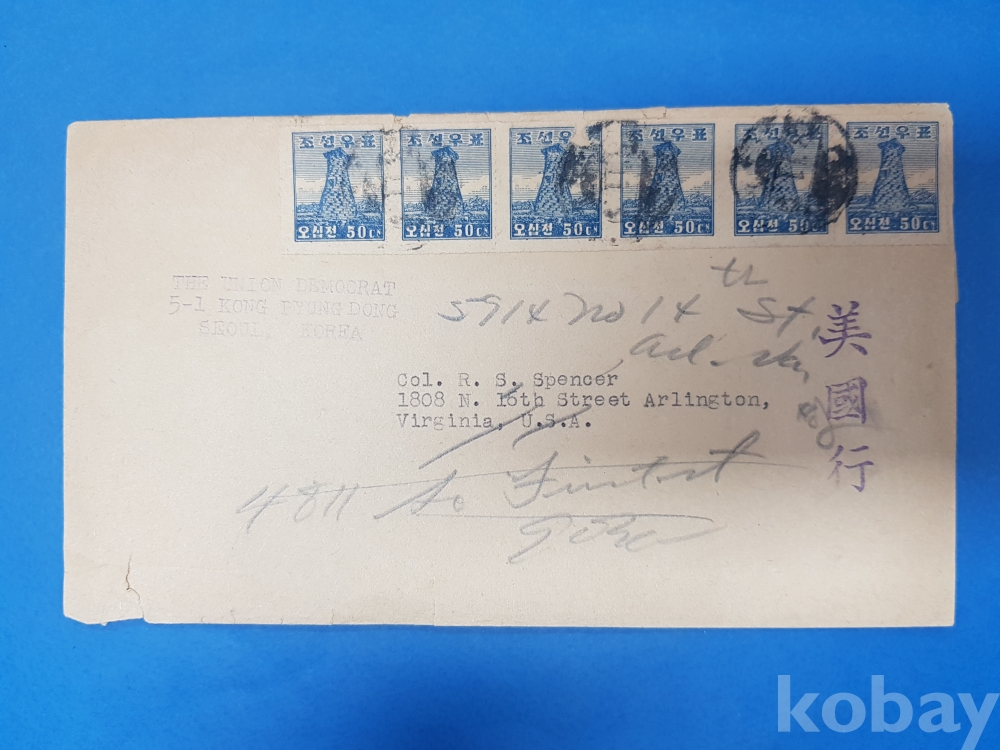 조선우표 조선우표 조선우표 조선우표 조선우표 조선우표
오십전 50CN. 오십전 50CN. 오십전 50CN. 오십전 50CN. 오십전 50 오십전 50CN
THE UNION DEMOCRAT
5-1 KONG PYUNG DONG
SEOUL, KOREA
th
5914 No 14 St,
Arl.
Col. R. S. Spencer
1808 N. 16th Street Arlington,
Virginia, U.S.A.
4811 So
美國行
kobay